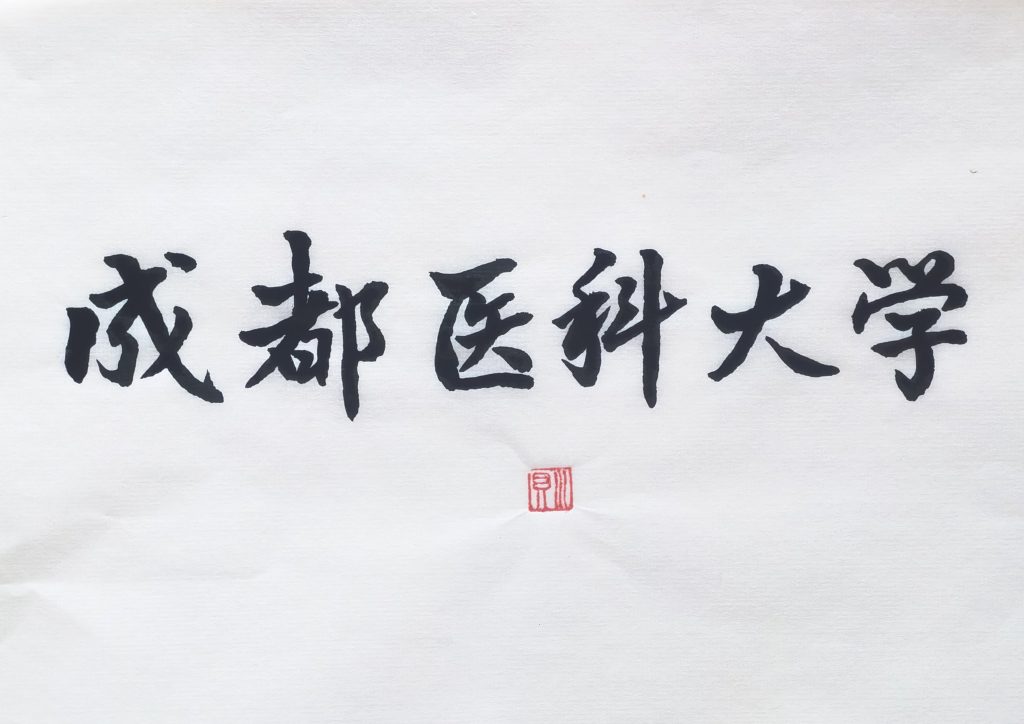 成都医科大学